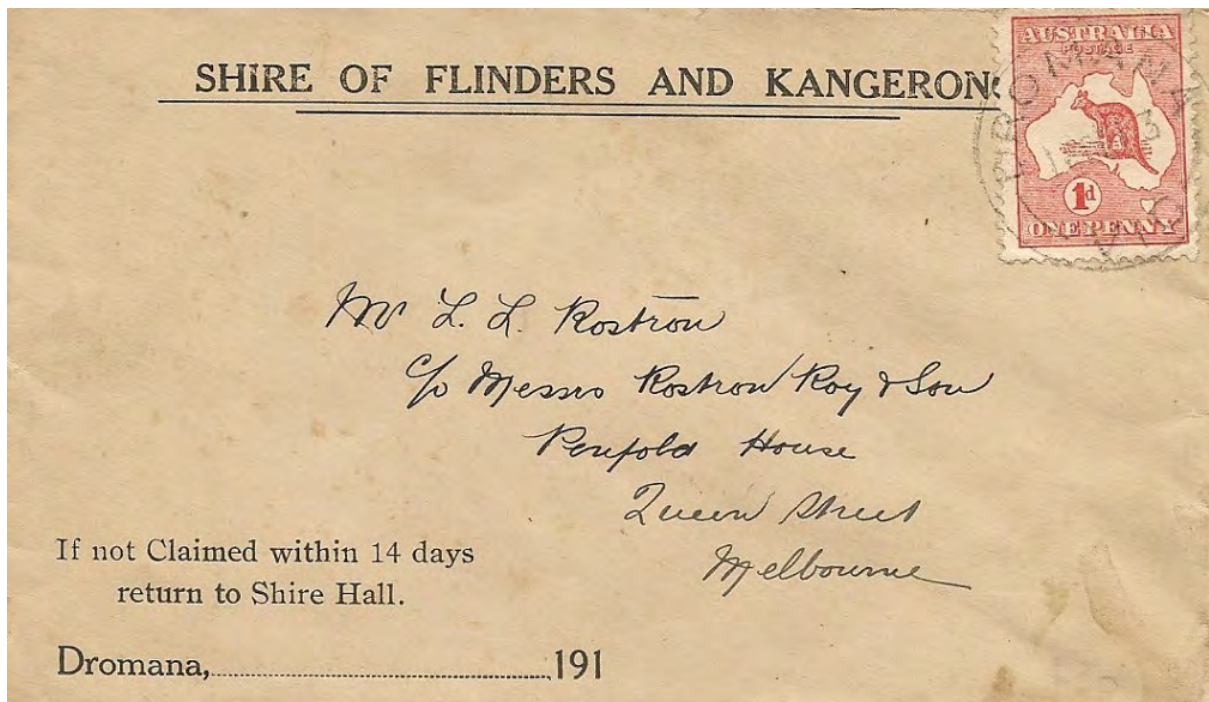 SHIRE OF FLINDERS AND KANGERONG
AUSTRALIA
POSTAGE
1d
ONE PENNY
DROMANA
VIC
Mr L. L. Rostron
c/o Messrs Rostron Roy & Son
Penfold House
Queen Street
Melbourne
If not Claimed within 14 days
return to Shire Hall.
Dromana, 191